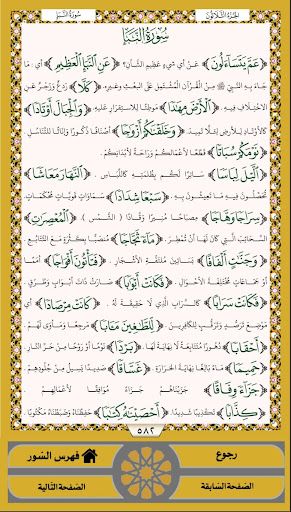 الجزء الثلاثون
سورة النبأ
سُورَةُ النَّبَإِ
﴿عَمَّ يَتَسَاءَلُونَ﴾ عَنْ أَيِّ شَيْءٍ عَظِيمِ الشَّأْنِ؟ ﴿عَنِ النَّبَإِ الْعَظِيمِ﴾ أَيْ: مَا
جَاءَ بِهِ النَّبِيُّ ﷺ مِنَ الْقُرْآنِ الْمُشْتَمِلِ عَلَى الْبَعْثِ وَغَيْرِهِ، ﴿كَلَّا﴾ رَدْعٌ وَزَجْرٌ عَنِ
الِاخْتِلَافِ فِيهِ. ﴿الْأَرْضَ مِهَادًا﴾ مُوَطَّأَةً لِلِاسْتِقْرَارِ عَلَيْهَا. ﴿وَالْجِبَالَ أَوْتَادًا﴾
كَالْأَوْتَادِ لِلْأَرْضِ لِئَلَّا تَمِيدَ. ﴿وَخَلَقْنَاكُمْ أَزْوَاجًا﴾ أَصْنَافًا ذُكُورًا وَإِنَاثًا لِلتَّنَاسُلِ.
﴿نَوْمَكُمْ سُبَاتًا﴾ قَطْعًا لِأَعْمَالِكُمْ وَرَاحَةً لِأَبْدَانِكُمْ.
﴿اللَّيْلَ لِبَاسًا﴾ سَاتِرًا لَكُمْ بِظُلْمَتِهِ كَاللِّبَاسِ. ﴿النَّهَارَ مَعَاشًا﴾
تُحَصِّلُونَ فِيهِ مَا تَعِيشُونَ بِهِ. ﴿سَبْعًا شِدَادًا﴾ سَمَاوَاتٍ قَوِيَّاتٍ مُحْكَمَاتٍ.
﴿سِرَاجًا وَهَّاجًا﴾ مِصْبَاحًا مُنِيرًا وَقَّادًا (الشَّمْسُ). ﴿الْمُعْصِرَاتِ﴾
السَّحَائِبِ الَّتِي حَانَ لَهَا أَنْ تُمْطِرَ. ﴿مَاءً ثَجَّاجًا﴾ مُنْصَبًّا بِكَثْرَةٍ مَعَ التَّتَابُعِ.
﴿وَجَنَّاتٍ أَلْفَافًا﴾ بَسَاتِينَ مُلْتَفَّةَ الْأَشْجَارِ. ﴿فَتَأْتُونَ أَفْوَاجًا﴾ أُمَمًا
أَوْ جَمَاعَاتٍ مُخْتَلِفَةَ الْأَحْوَالِ. ﴿فَكَانَتْ أَبْوَابًا﴾ صَارَتْ ذَاتَ أَبْوَابٍ وَطُرُقٍ.
﴿فَكَانَتْ سَرَابًا﴾ كَالسَّرَابِ الَّذِي لَا حَقِيقَةَ لَهُ. ﴿كَانَتْ مِرْصَادًا﴾
مَوْضِعَ تَرَصُّدٍ وَتَرَقُّبٍ لِلْكَافِرِينَ. ﴿لِلطَّاغِينَ مَآبًا﴾ مَرْجِعًا وَمَأْوًى لَهُمْ.
﴿أَحْقَابًا﴾ دُهُورًا مُتَتَابِعَةً لَا نِهَايَةَ لَهَا. ﴿بَرْدًا﴾ نَوْمًا أَوْ رَوْحًا مِنْ حَرِّ النَّارِ.
﴿حَمِيمًا﴾ مَاءً بَالِغًا نِهَايَةَ الْحَرَارَةِ. ﴿غَسَّاقًا﴾ صَدِيدًا يَسِيلُ مِنْ جُلُودِهِمْ.
﴿جَزَاءً وِفَاقًا﴾ جَزَيْنَاهُمْ جَزَاءً مُوَافِقًا لِأَعْمَالِهِمْ.
﴿كِذَّابًا﴾ تَكْذِيبًا شَدِيدًا. ﴿أَحْصَيْنَاهُ كِتَابًا﴾ حَفِظْنَاهُ وَضَبَطْنَاهُ مَكْتُوبًا.
٥٨٢
رجوع
فهرس السّور
الصّفحة السّابقة
الصّفحة التّالية